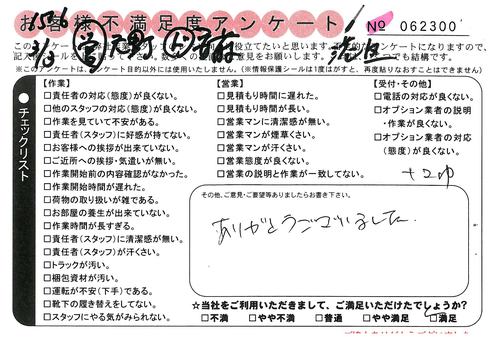 お客様不満足度アンケート
№ 062300
【作業】
□責任者の対応(態度)が良くない。
□他のスタッフの対応(態度)が良くない。
□作業を見ていて不安がある。
□責任者(スタッフ)に好感が持てない。
□お客様への挨拶が出来ていない。
□ご近所への挨拶・気遣いが無い。
□作業開始前の内容確認がなかった。
□作業開始時間が遅れた。
□荷物の取り扱いが雑である。
□お部屋の養生が出来ていない。
□作業時間が長すぎる。
□責任者(スタッフ)に清潔感が無い。
□責任者(スタッフ)が汗くさい。
□トラックが汚い。
□梱包資材が汚い。
□運転が不安(下手)である。
□靴下の履き替えをしてない。
□スタッフにやる気がみられない。
【営業】
□見積もり時間に遅れた。
□見積もり時間が長い。
□営業マンに清潔感が無い。
□営業マンが煙草くさい。
□営業マンが汗くさい。
□営業態度が良くない。
□営業の説明と作業が一致してない。
【受付・その他】
□電話の対応が良くない。
□オプション業者の説明
・作業が良くない。
□オプション業者の対応
(態度)が良くない。
チェックリスト
その他、ご意見・ご要望等ありましたらお書き下さい。
ありがとうございました
☆当社をご利用いただきまして、ご満足いただけたでしょうか?
□不満 □やや不満 □普通 □やや満足 □満足